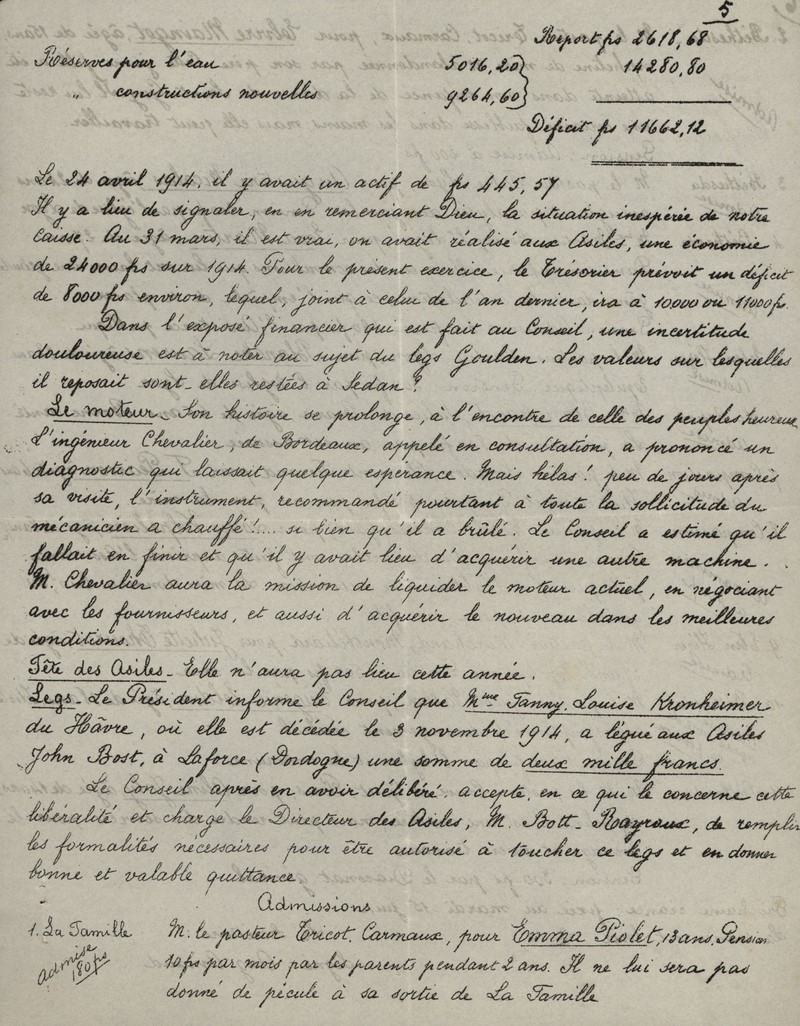 5
Report fs 2618,68
Réserves pour l'eau 5016,20 } 14280,80
" constructions nouvelles 9264,60 }
Déficit fs 11662,12
Le 24 avril 1914, il y avait un actif de fs 445,57
Il y a lieu de signaler, en en remerciant Dieu, la situation inespérée de notre
Caisse. Au 31 mars, il est vrai, on avait réalisé aux Asiles, une économie
de 24000 fs sur 1914. Pour le présent exercice, le Trésorier prévoit un déficit
de 8000 fs environ, lequel, joint à celui de l'an dernier, ira à 10.000 ou 11000 fs.
Dans l'exposé financier qui est fait au Conseil, une incertitude
douloureuse est à noter au sujet du legs Goulden. Les valeurs sur lesquelles
il reposait sont-elles restées à Sedan ?
Le moteur. Son histoire se prolonge, à l'encontre de celle des peuples heureux
L'ingénieur Chevalier, de Bordeaux, appelé en consultation, a prononcé un
diagnostic qui laissait quelque espérance. Mais hélas! peu de jours après
sa visite, l'instrument, recommandé pourtant à toute la sollicitude du
mécanicien a chauffé!.... si bien qu'il a brûlé. Le Conseil a estimé qu'il
fallait en finir et qu'il y avait lieu d'acquérir une autre machine.
M. Chevalier aura la mission de liquider le moteur actuel, en négociant
avec les fournisseurs, et aussi d'acquérir le nouveau dans les meilleures
conditions.
Fête des Asiles - Elle n'aura pas lieu cette année.
Legs - Le Président informe le Conseil que Mme Fanny Louise Kronheimer
du Hâvre, où elle est décédée le 3 novembre 1914, a légué aux Asiles
John Bost, à Laforce (Dordogne) une somme de deux mille francs.
Le Conseil après en avoir délibéré, accepte, en ce qui le concerne cette
libéralité et charge le Directeur des Asiles, M. Bott-Rayroux, de remplir
les formalités nécessaires pour être autorisé à toucher ce legs et en donner
bonne et valable quittance.
Admissions
1. La Famille M. le pasteur Tricot, Carmaux, pour Emma Piolet, 13 ans. Pension
Admise 10 fs par mois par les parents pendant 2 ans. Il ne lui sera pas
180 fs donné de pécule à sa sortie de La Famille